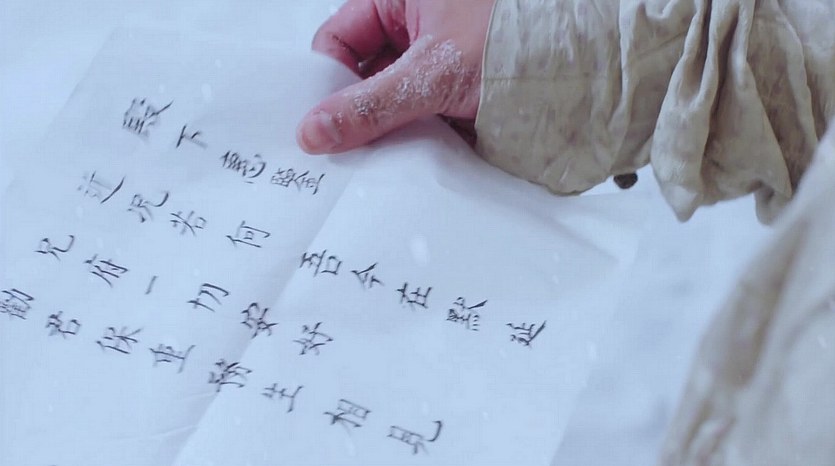 殿下惠鑒
近況若何 吾今在
兄府一切安好
勸君保重 生相見